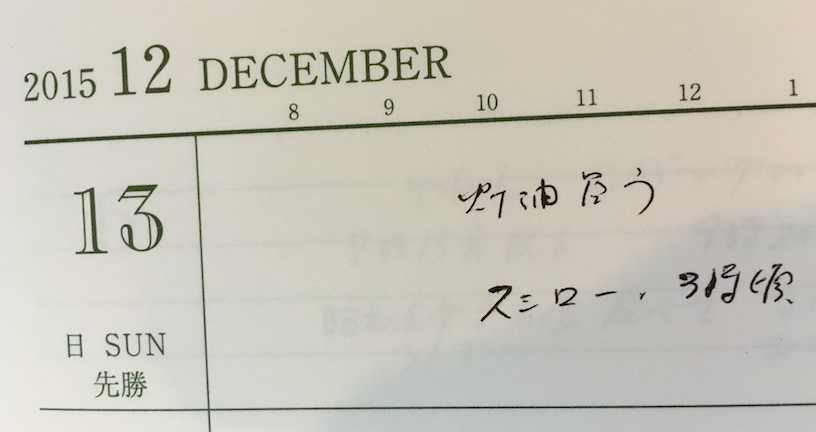 2015 12 DECEMBER
8 9 10 11 12 1
13
日 SUN
先勝
灯油買う
スシロー、3時頃